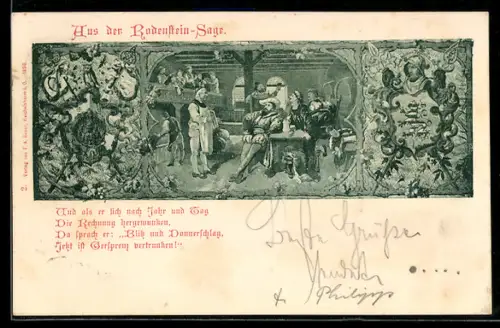 Aus der Rodenstein-Sage.
Und als er sich nach Jahr und Tag
Die Rechnung hergewunken,
Da sprach er: „Blitz und Donnerschlag,
Jetzt ist Gersprenz vertrunken!"
Beste Grüße
Philipp